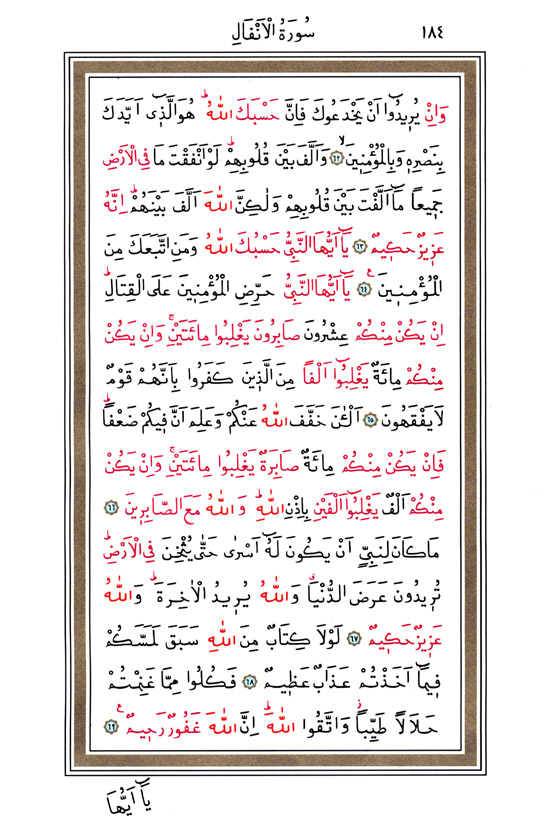 ١٨٤ سُورَةُ الْاَنْفَالِ
وَاِنْ يُرٖيدُٓوا اَنْ يَخْدَعُوكَ فَاِنَّ حَسْبَكَ اللّٰهُؕ هُوَالَّذٖٓى اَيَّدَكَ
بِنَصْرِهٖ وَبِالْمُؤْمِنٖينَۙ ﴿٦٢﴾ وَاَلَّفَ بَيْنَ قُلُوبِهِمْؕ لَوْ اَنْفَقْتَ مَا فِى الْاَرْضِ
جَمٖيعاً مَٓا اَلَّفْتَ بَيْنَ قُلُوبِهِمْ وَلٰكِنَّ اللّٰهَ اَلَّفَ بَيْنَهُمْؕ اِنَّهُ
عَزٖيزٌ حَكٖيمٌ ﴿٦٣﴾ يَٓا اَيُّهَا النَّبِىُّ حَسْبُكَ اللّٰهُ وَمَنِ اتَّبَعَكَ مِنَ
الْمُؤْمِنٖينَࣖ ﴿٦٤﴾ يَٓا اَيُّهَا النَّبِىُّ حَرِّضِ الْمُؤْمِنٖينَ عَلَى الْقِتَالِؕ
اِنْ يَكُنْ مِنْكُمْ عِشْرُونَ صَابِرُونَ يَغْلِبُوا مِائَتَيْنِۚ وَاِنْ يَكُنْ
مِنْكُمْ مِائَةٌ يَغْلِبُٓوا اَلْفاً مِنَ الَّذٖينَ كَفَرُوا بِاَنَّهُمْ قَوْمٌ
لَا يَفْقَهُونَ ﴿٦٥﴾ اَلْـٰٔنَ خَفَّفَ اللّٰهُ عَنْكُمْ وَعَلِمَ اَنَّ فٖيكُمْ ضَعْفاًؕ
فَاِنْ يَكُنْ مِنْكُمْ مِائَةٌ صَابِرَةٌ يَغْلِبُوا مِائَتَيْنِۚ وَاِنْ يَكُنْ
مِنْكُمْ اَلْفٌ يَغْلِبُٓوا اَلْفَيْنِ بِاِذْنِ اللّٰهِؕ وَ اللّٰهُ مَعَ الصَّابِرٖينَ ﴿٦٦﴾
مَا كَانَ لِنَبِىٍّ اَنْ يَكُونَ لَهُٓ اَسْرٰى حَتّٰى يُثْخِنَ فِى الْاَرْضِؕ
تُرٖيدُونَ عَرَضَ الدُّنْيَاۗ وَاللّٰهُ يُرٖيدُ الْاٰخِرَةَؕ وَاللّٰهُ
عَزٖيزٌ حَكٖيمٌ ﴿٦٧﴾ لَوْلَا كِتَابٌ مِنَ اللّٰهِ سَبَقَ لَمَسَّكُمْ
فٖيمَٓا اَخَذْتُمْ عَذَابٌ عَظٖيمٌ ﴿٦٨﴾ فَكُلُوا مِمَّا غَنِمْتُمْ
حَلَالاً طَيِّباًؗ وَاتَّقُوا اللّٰهَؕ اِنَّ اللّٰهَ غَفُورٌ رَحٖيمٌࣖ ﴿٦٩﴾
يَٓا اَيُّهَا